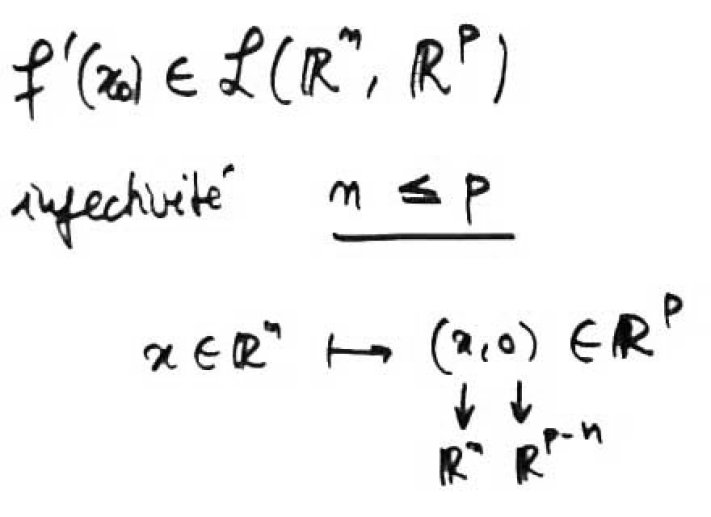 f'(x₀) ∈ ℒ(ℝⁿ, ℝᵖ)
injectivité n ≤ p
x ∈ ℝⁿ ↦ (x,0) ∈ ℝᵖ
↓ ↓
ℝⁿ ℝᵖ⁻ⁿ